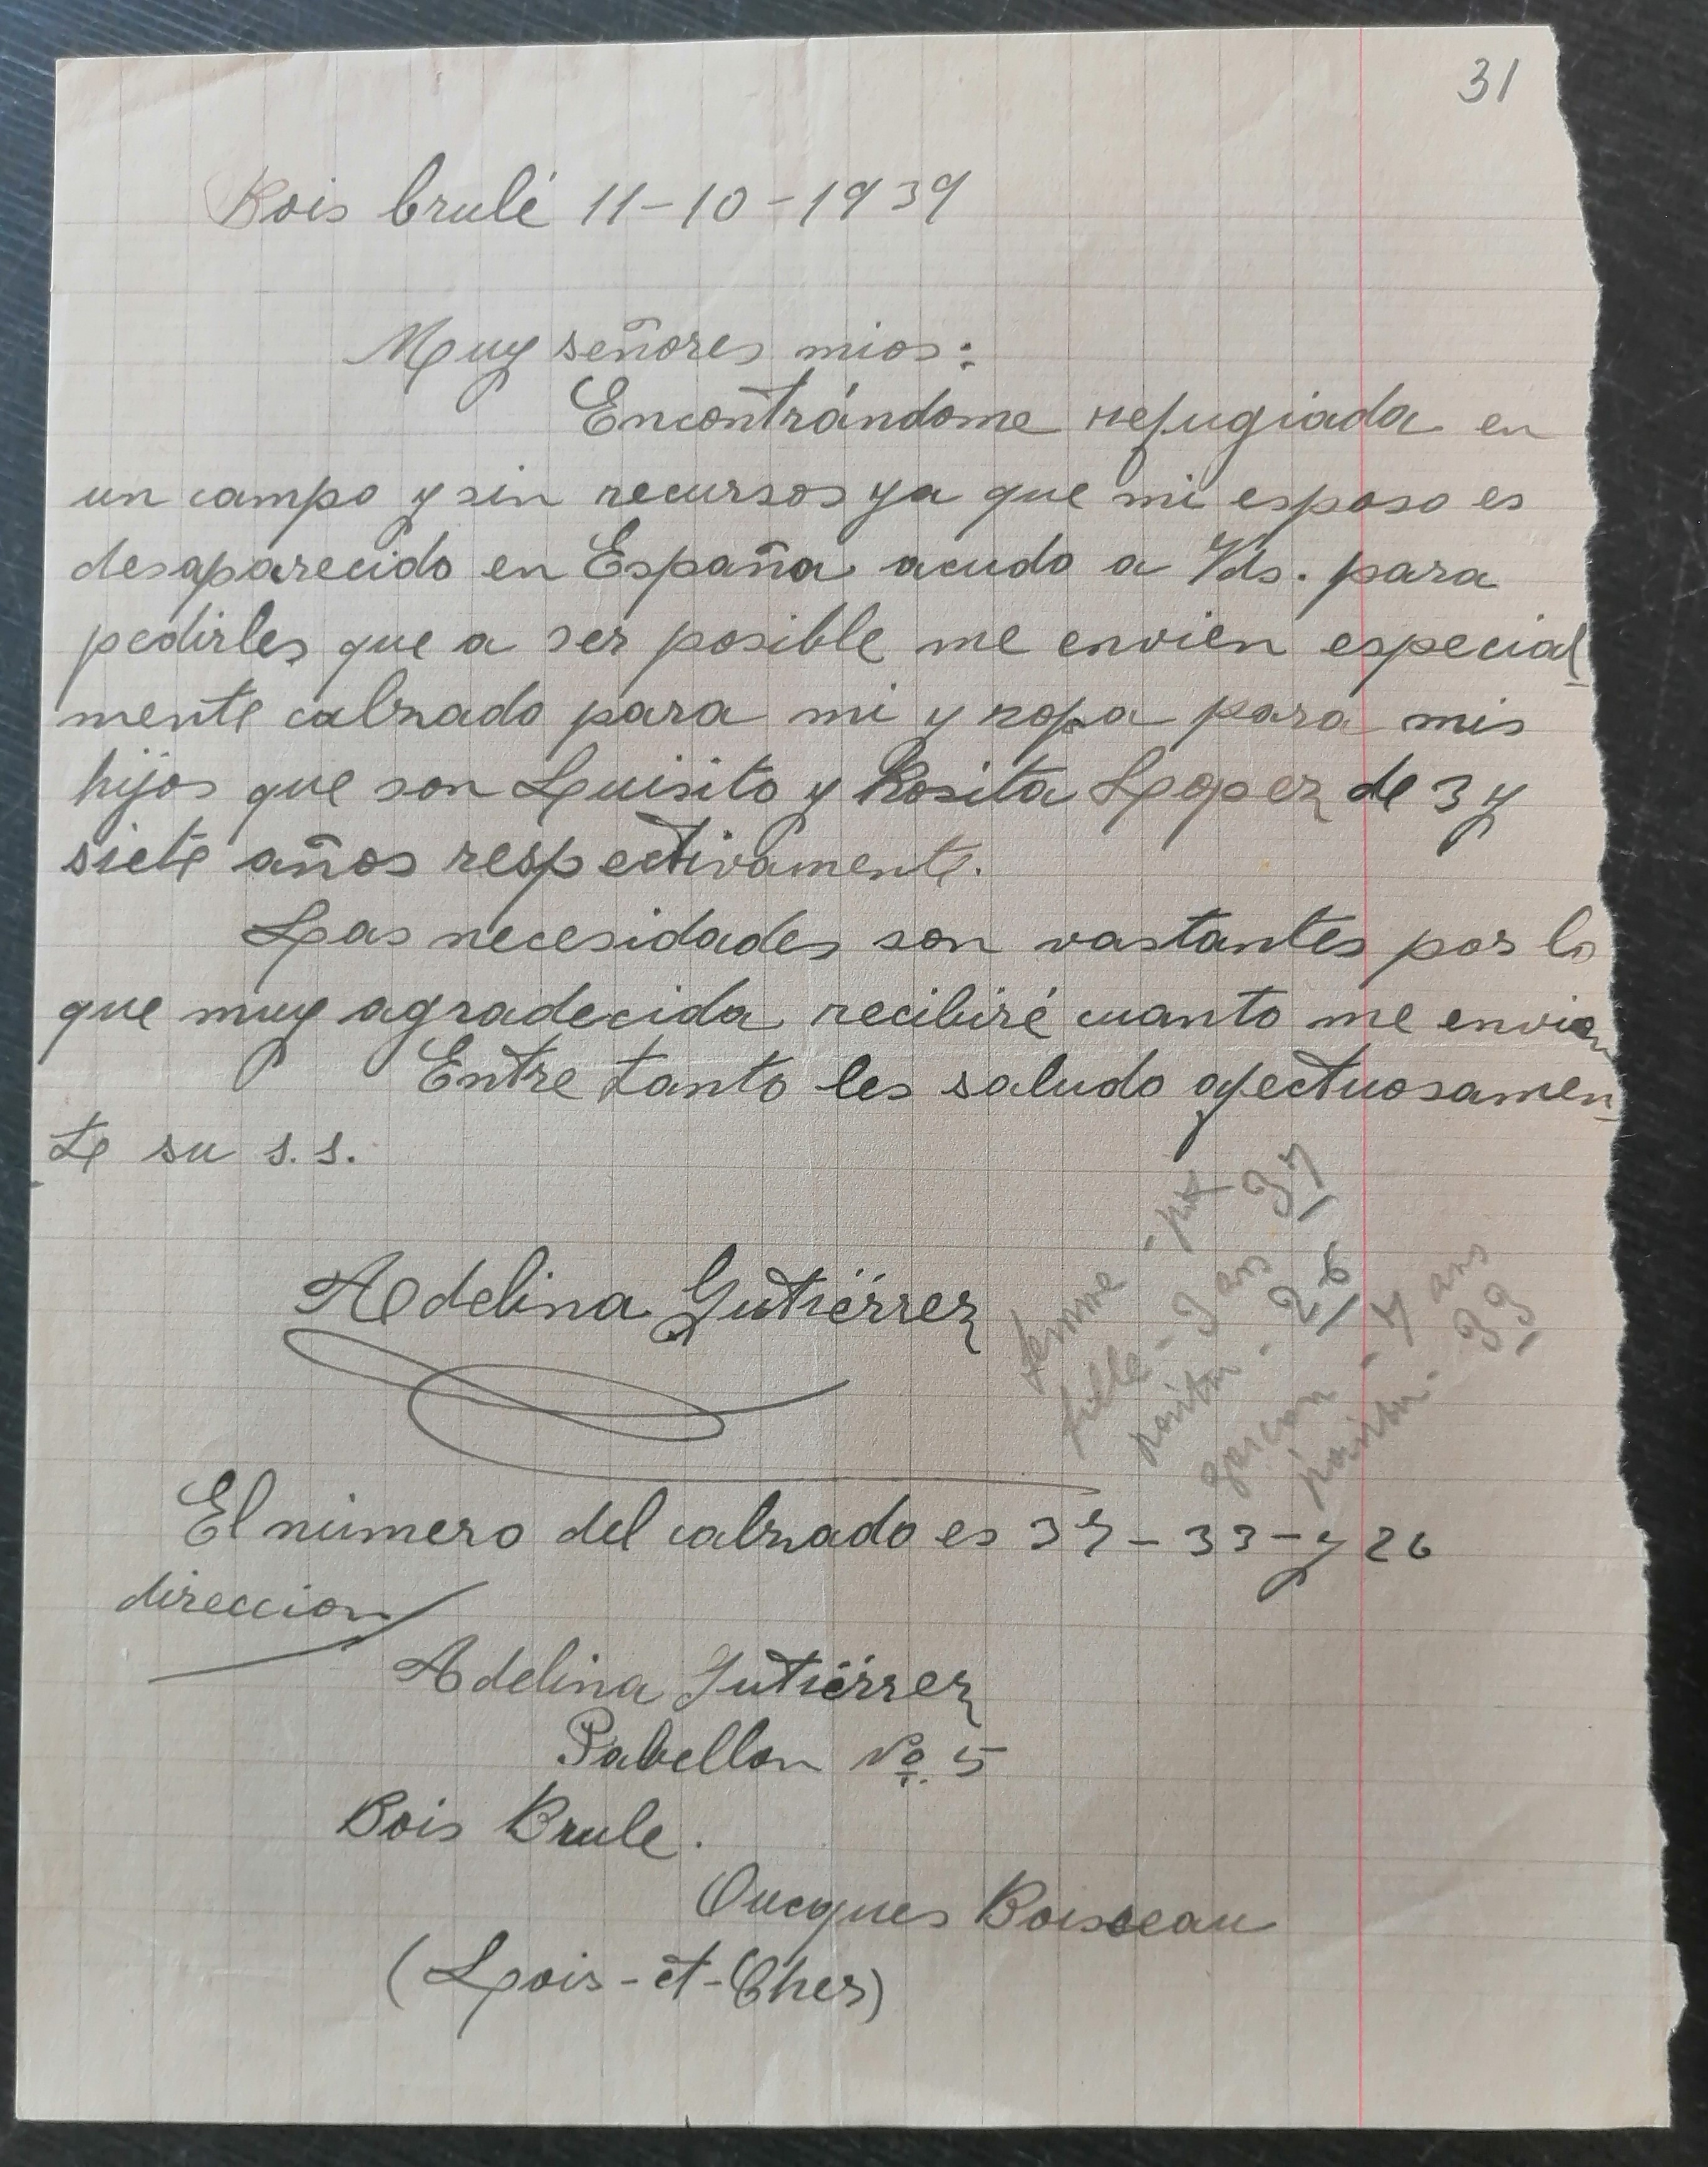 31
Bois brulé 11-10-1939
Muy señores mios:
Encontrándome refugiada en
un campo y sin recursos ya que mi esposo es
desaparecido en España acudo a Vds. para
pedirles que a ser posible me envien especial
mente calzado para mi y ropa para mis
hijos que son Luisito y Rosita Lopez de 3 y
siete años respectivamente.
Las necesidades son vastantes por lo
que muy agradecida recibiré cuanto me envian
Entre tanto les saludo afectuosamen
te su s.s.
Adelina Gutiérrez
femme - pt 37
fille - 3 ans
pointur - 26
garçon - 7 ans
pointur - 33
El número del calzado es 37 - 33 - y 26
direccion
Adelina Gutiérrez
Pabellon Nº. 5
Bois Brule.
Oucques Boisseau
(Lois-et-Cher)